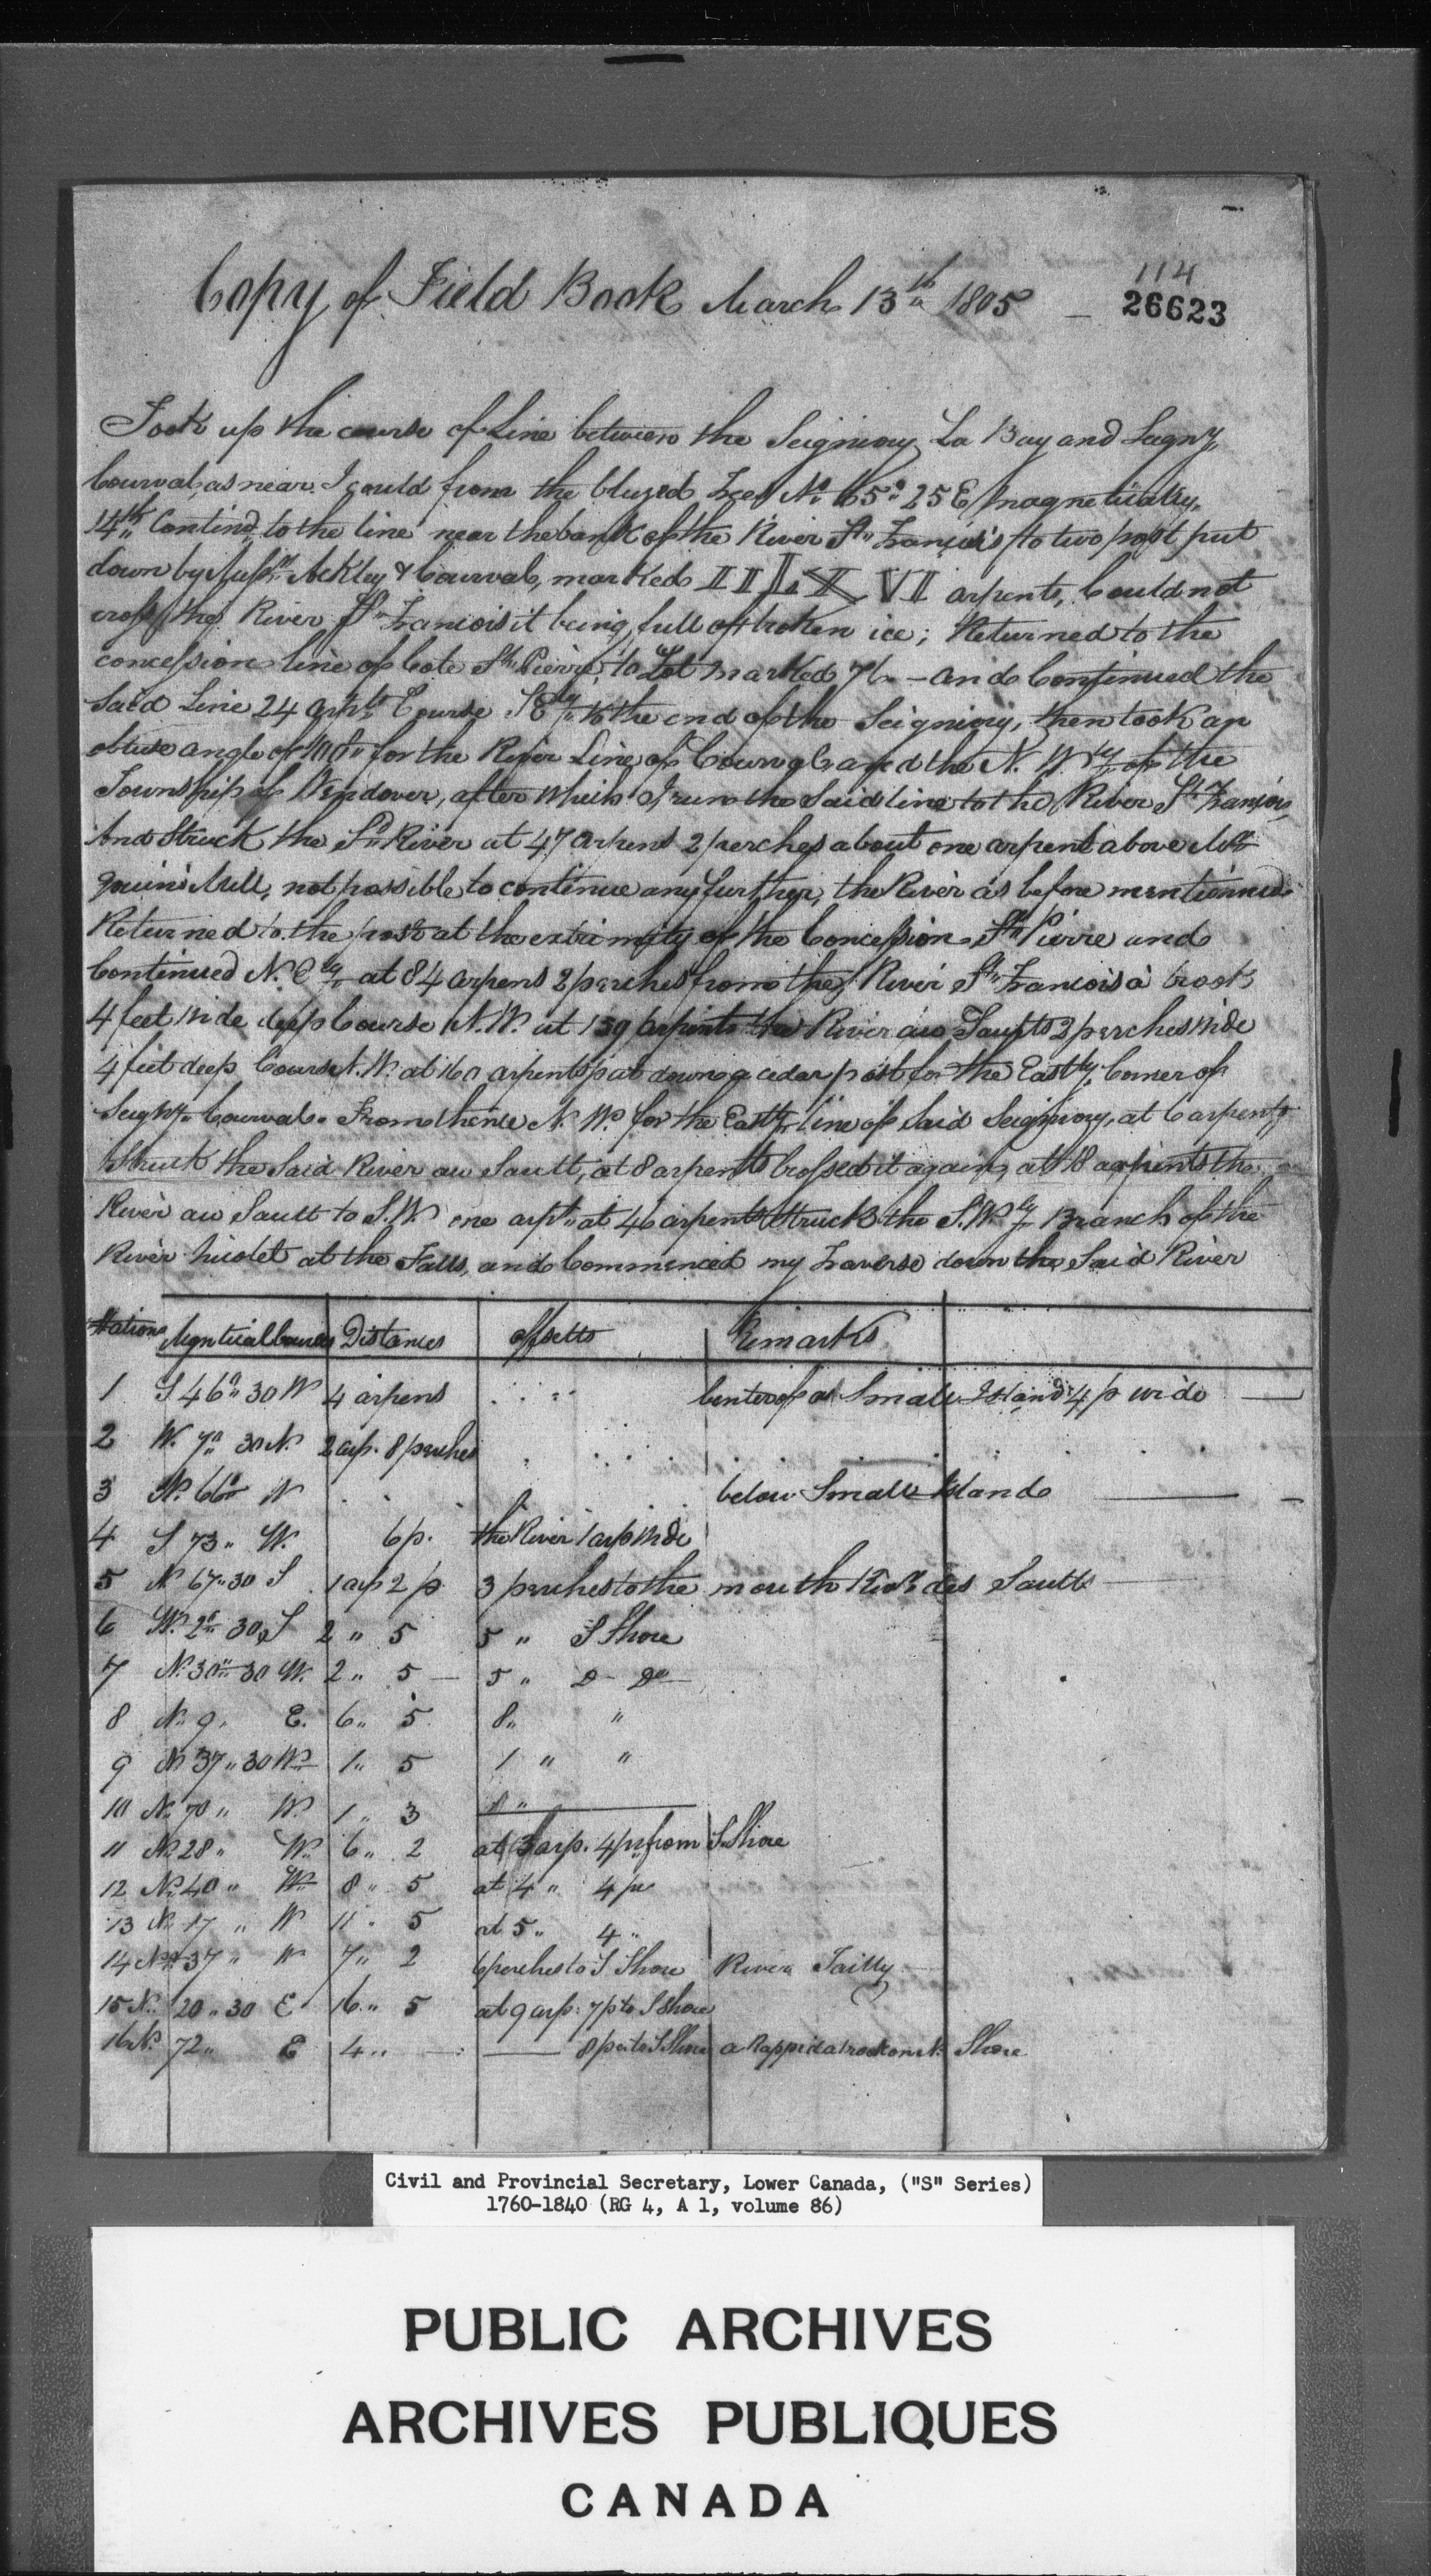 114
Copy of Field Book March 13th 1805 — 26623
Took up the course of Line between the Seigniory La Bay and Seigny
Courval, as near I could from the blazed Trees No 65° 25 E magnetically,
14th Contind to the line near the bank of the River St Francois to two post put
down by Ackley & Courval, marked II LXVI arpents, Could not
cross the River St Francois it being full of broken ice; Returned to the
concession line of Cote St Pierre to Lot marked 76 – and Continued the
Said Line 24 arpts Course SEly to the end of the Seigniory, then took an
obtuse angle of for the River Line of Courval and the N. Wly of the
Township of Wendover, after which I run the Said line to the River St Francois,
And Struck the Sd River at 47 arpens 2 perches about one arpent above
Mill, not possible to continue any further, the River as before mentionned
Returned to the post at the extrimity of the Concession St Pierre and
Continued N. Ely at 84 arpens 2 perches from the River St Francois a brook
4 feet wide deep Course N.W. at 159 arpents the River au Saults 2 perches wide
4 feet deep Course N.W. at 160 arpents put down a cedar post for the Eastly Corner of
Seigny Courval. From thence N. W. for the Eastly line of Said Seigniory, at 6 arpents
Struck the Said River au Sault, at 8 arpents Crossed it again, at 18 arpents the
River au Sault to S.W. one arpt at 46 arpents Struck the S.Wly Branch of the
River Nicolet at the Falls, and Commenced my Traverse down the Said River
Stations Magntical Courses Distances offsetts Remarks
1 S 46° 30 W 4 arpens Center of a Small Island 4 p wide
2 W. 7° 30 N. 2 arp. 8 perches
3 N. 66° W below Small Island
4 S 73 " W. 6 p. the River 1 arp wide
5 N 67 " 30 S 1 arp 2 p. 3 perches to the mouth River des Saults
6 W. 2° 30 S 2 " 5 5 " S Shore
7 N. 30° 30 W. 2 " 5 — 5 " D- Do
8 N. 9 " E. 6 " 5 8 " "
9 N 37 " 30 W 1 " 5 1 " "
10 N. 70 " W. 1 " 3 8 "
11 N. 28 " W. 6 " 2 at 3 arp. 4 p from S. Shore
12 N. 40 " W 8 " 5 at 4 " 4 p
13 N. 17 " W 11 " 5 at 5 " 4 "
14 N. 37 " W 7 " 2 6 perches to S Shore River Tailly
15 N. 20 " 30 E 16 " 5 at 9 arp: 7 p to S Shore
16 N. 72 " E 4 " — 8 p to S Shore a Rappid a rock on N. Shore
Civil and Provincial Secretary, Lower Canada, ("S" Series)
1760-1840 (RG 4, A 1, volume 86)
PUBLIC ARCHIVES
ARCHIVES PUBLIQUES
CANADA